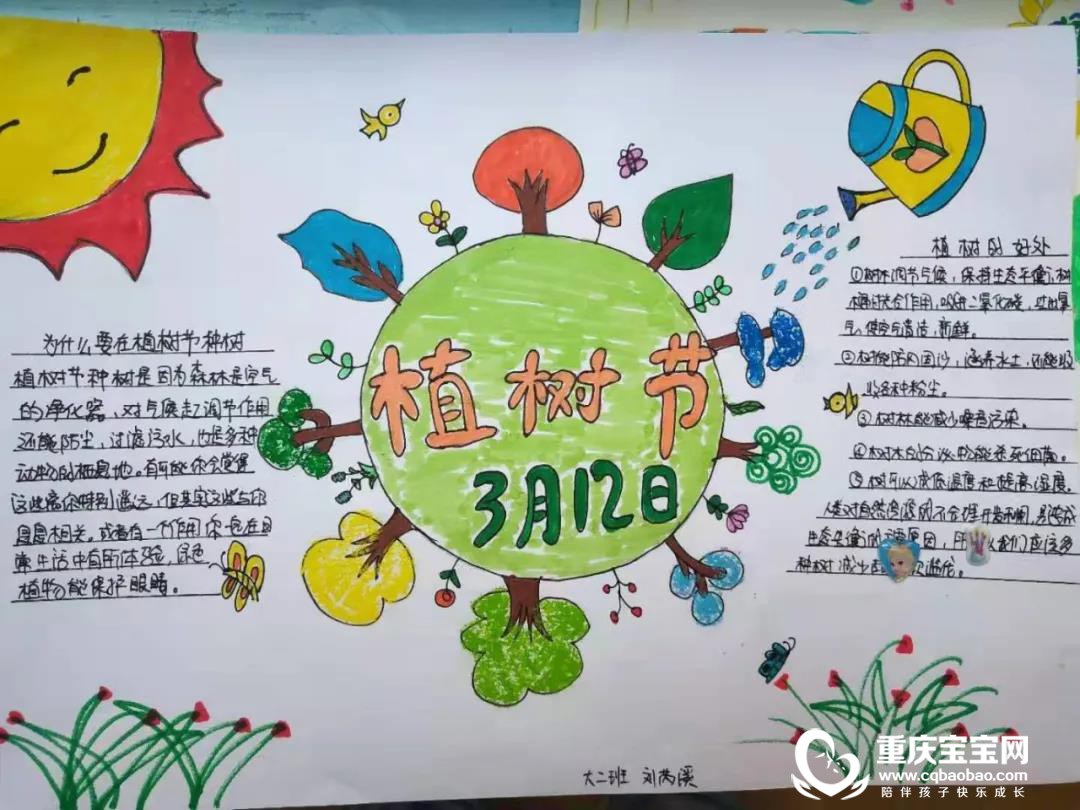 为什么要在植树节种树
植树节种树是因为森林是空气
的净化器、对气候起了调节作用
还能防尘，过滤污水，也是多种
动物的栖息地。有可能你会觉得
这些离你特别遥远，但其实这些与你
息息相关。或者有一个作用你会在日
常生活中有所体验，绿色
植物能保护眼睛。
植树节
3月12日
植树的好处
①树木调节气候，保持生态平衡，树
气，使空气清洁，新鲜。
②树能防风固沙，涵养水土，还能吸
收各种粉尘。
③树林能减少噪音污染。
④树木的分泌物能杀死细菌。
⑤树可以减低温度和提高湿度。
种树 减少
大二班 刘芮溪
重庆宝宝网
www.cqbaobao.com
陪伴孩子快乐成长